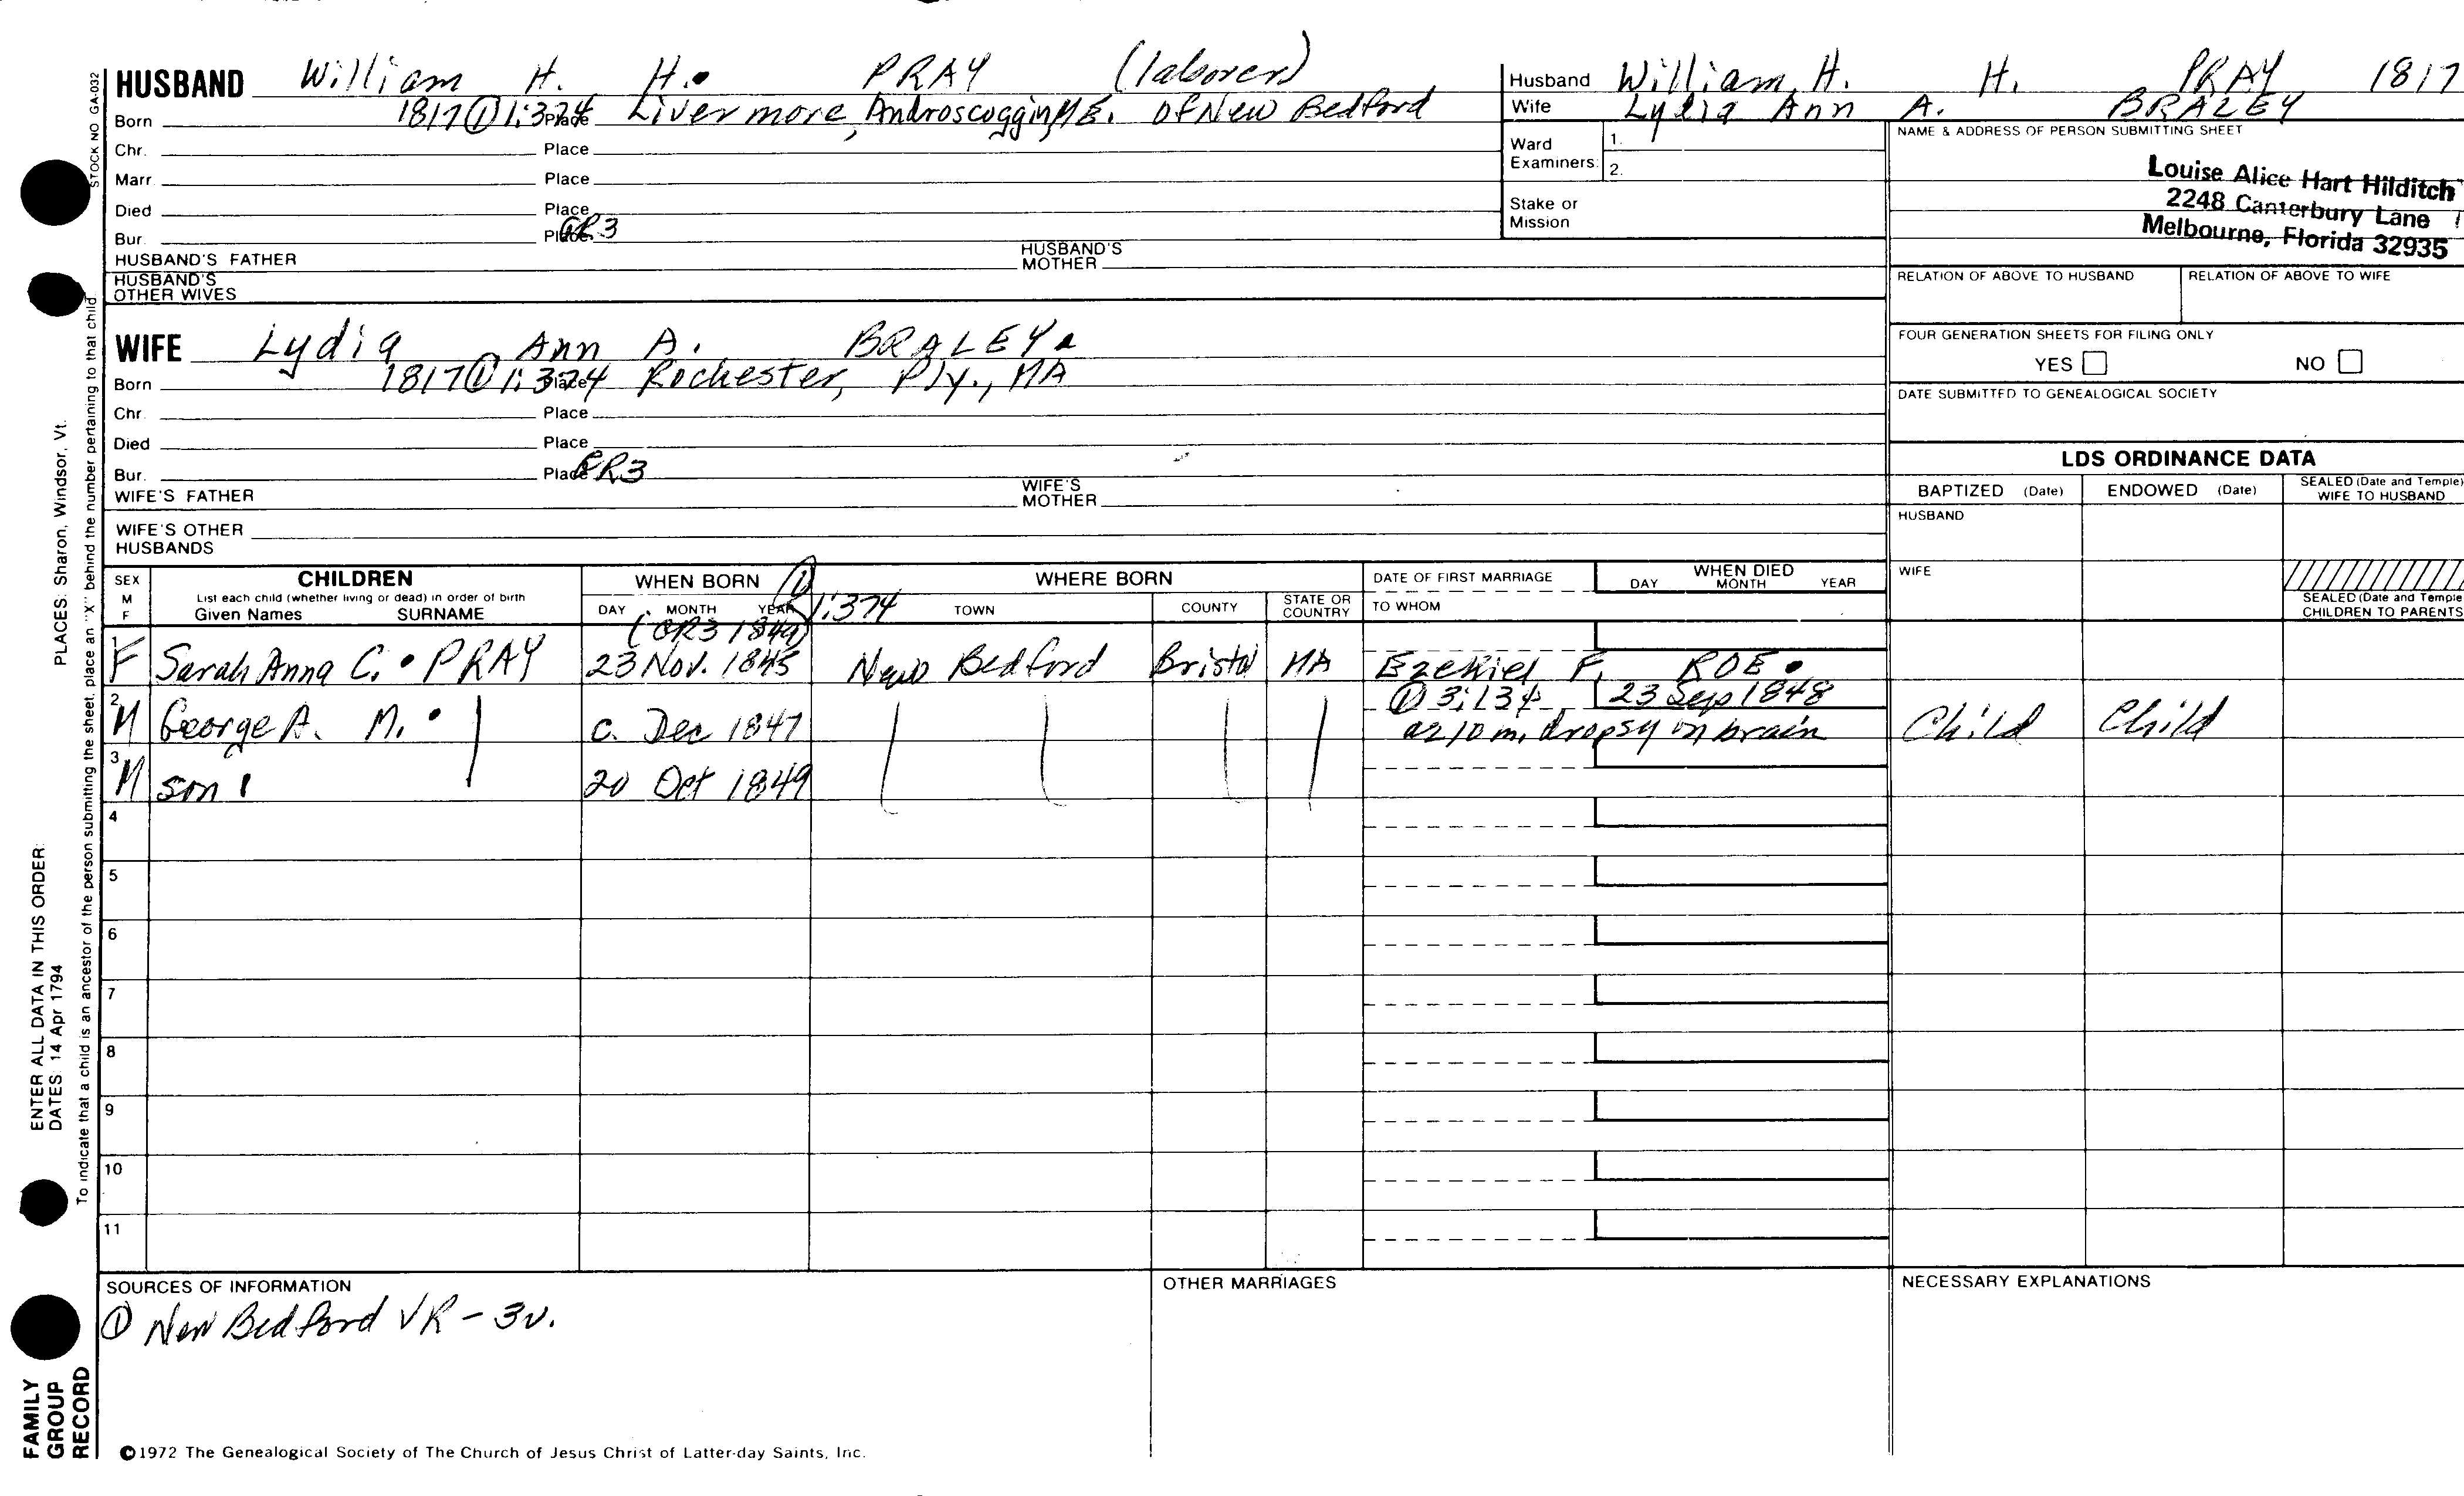 STOCK NO GA-032
HUSBAND William H. H. PRAY (laborer)
Born 1817 ① 1:374 Place Livermore, Androscoggin, ME. of New Bedford
Chr. Place
Marr. Place
Died Place
Bur. Place GR3
HUSBAND'S FATHER HUSBAND'S MOTHER
HUSBAND'S OTHER WIVES
WIFE Lydia Ann A. BRALEY
Born 1817 ① 1:374 Place Rochester, Ply., MA
Chr. Place
Died Place
Bur. Place GR3
WIFE'S FATHER WIFE'S MOTHER
WIFE'S OTHER HUSBANDS
Husband William H. H. PRAY 1817
Wife Lydia Ann A. BRALEY
Ward Examiners: 1.
2.
Stake or Mission
NAME & ADDRESS OF PERSON SUBMITTING SHEET
Louise Alice Hart Hilditch
2248 Canterbury Lane
Melbourne, Florida 32935
RELATION OF ABOVE TO HUSBAND RELATION OF ABOVE TO WIFE
FOUR GENERATION SHEETS FOR FILING ONLY
YES NO
DATE SUBMITTED TO GENEALOGICAL SOCIETY
LDS ORDINANCE DATA
BAPTIZED (Date) ENDOWED (Date) SEALED (Date and Temple) WIFE TO HUSBAND
HUSBAND
WIFE
SEALED (Date and Temple) CHILDREN TO PARENTS
SEX M F CHILDREN WHEN BORN ① 1:374 WHERE BORN DATE OF FIRST MARRIAGE WHEN DIED
List each child (whether living or dead) in order of birth
Given Names SURNAME DAY MONTH YEAR TOWN COUNTY STATE OR COUNTRY TO WHOM DAY MONTH YEAR
(GR3 1849)
1 F Sarah Anna C. • PRAY 23 Nov. 1845 New Bedford Bristol MA Ezekiel F. ROE •
① 3:134 23 Sep 1848
2 M George A. M. • c. Dec 1847 ae 10 m. dropsy on brain Child Child
3 M son 20 Oct 1849
4
5
6
7
8
9
10
11
SOURCES OF INFORMATION OTHER MARRIAGES NECESSARY EXPLANATIONS
① New Bedford VR - 3v.
©1972 The Genealogical Society of The Church of Jesus Christ of Latter-day Saints, Inc.
To indicate that a child is an ancestor of the person submitting the sheet, place an "X" behind the number pertaining to that child.
ENTER ALL DATA IN THIS ORDER:
DATES: 14 Apr 1794 PLACES: Sharon, Windsor, Vt.
FAMILY
GROUP
RECORD